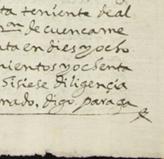 ta teniente de al
gon de cuencame
ata en dies y ocho
mientos y ochenta
sisiese diligençia
nado, digo parada